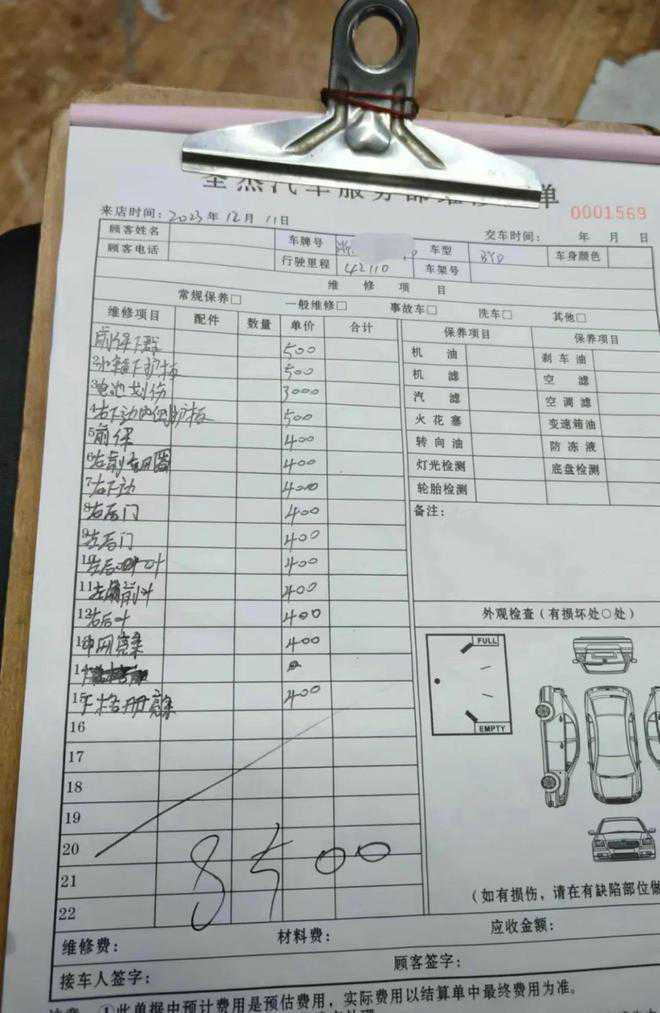 单
0001569
来店时间：2023年12月11日 交车时间： 年 月 日
顾客姓名 车牌号 浙 车型 BYD 车身颜色
顾客电话 行驶里程 42110 车架号
维 修 项 目
常规保养□ 一般维修□ 事故车□ 洗车□ 其他□
维修项目 配件 数量 单价 合计
前保下群 500
2 水箱下护板 500
3 电池划伤 3000
4 右下动内侧护板 500
5 前保 400
6 400
7 右下动 400
8 右后门 400
9 左后门 400
10 左后叶 400
11 左前叶 400
12 右后叶 400
13 中网 400
14
15 下格栅 400
16
17
18
19
20
21
22
8500
保养项目 保养项目
机 油 刹车油
机 滤 空 滤
汽 滤 空调滤
火花塞 变速箱油
转向油 防冻液
灯光检测 底盘检测
轮胎检测
备注：
外观检查（有损坏处○处）
FULL
EMPTY
（如有损伤，请在有缺陷部位做
维修费： 材料费： 应收金额：
接车人签字： 顾客签字：
①此单据中预计费用是预估费用，实际费用以结算单中最终费用为准。